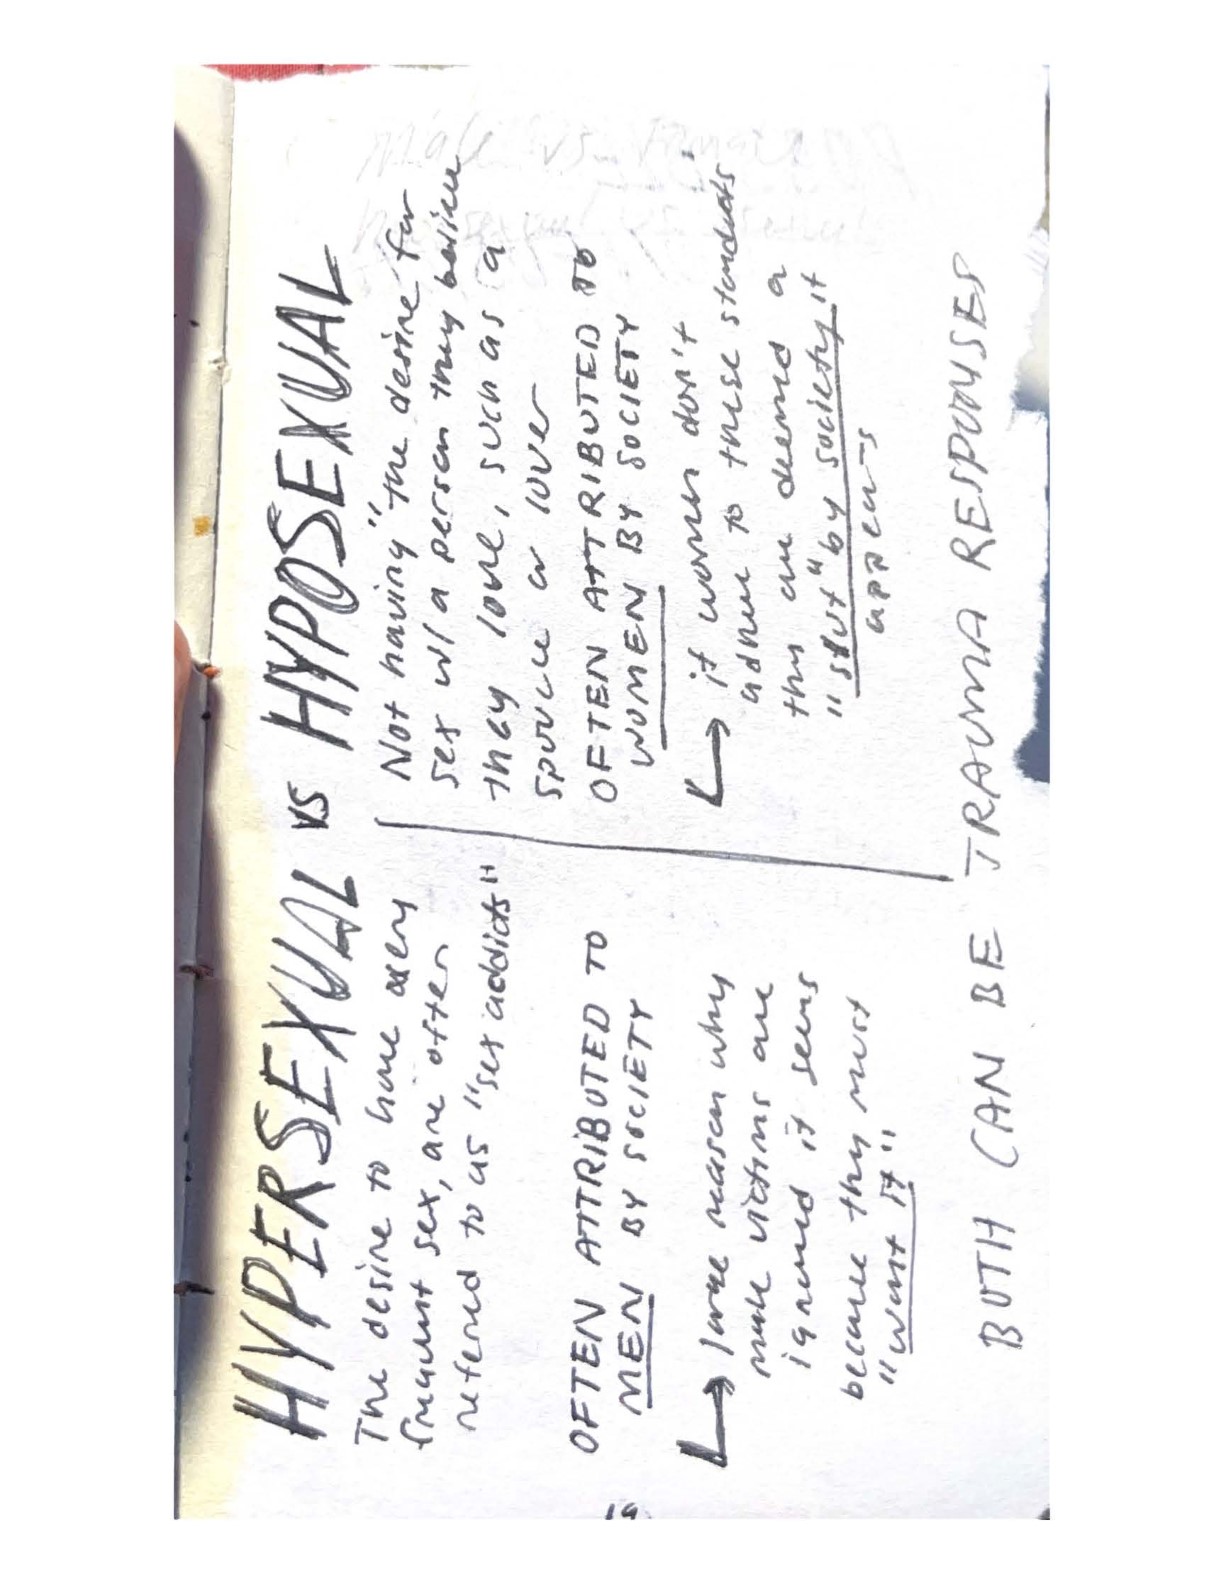 HYPERSEXUAL vs HYPOSEXUAL
The desire to have very
frequent sex, are often
referred to as "sex addicts"
OFTEN ATTRIBUTED TO
MEN BY SOCIETY
↳ large reason why
male victims are
ignored it seems
because they must
"want it"
Not having "the desire for
sex w/a person they
they love, such as a
spouse or lover
OFTEN ATTRIBUTED TO
WOMEN BY SOCIETY
↳ if women don't
adhere to these standards
they are deemed a
"slut" by society it
appears
BOTH CAN BE TRAUMA RESPONSES
19